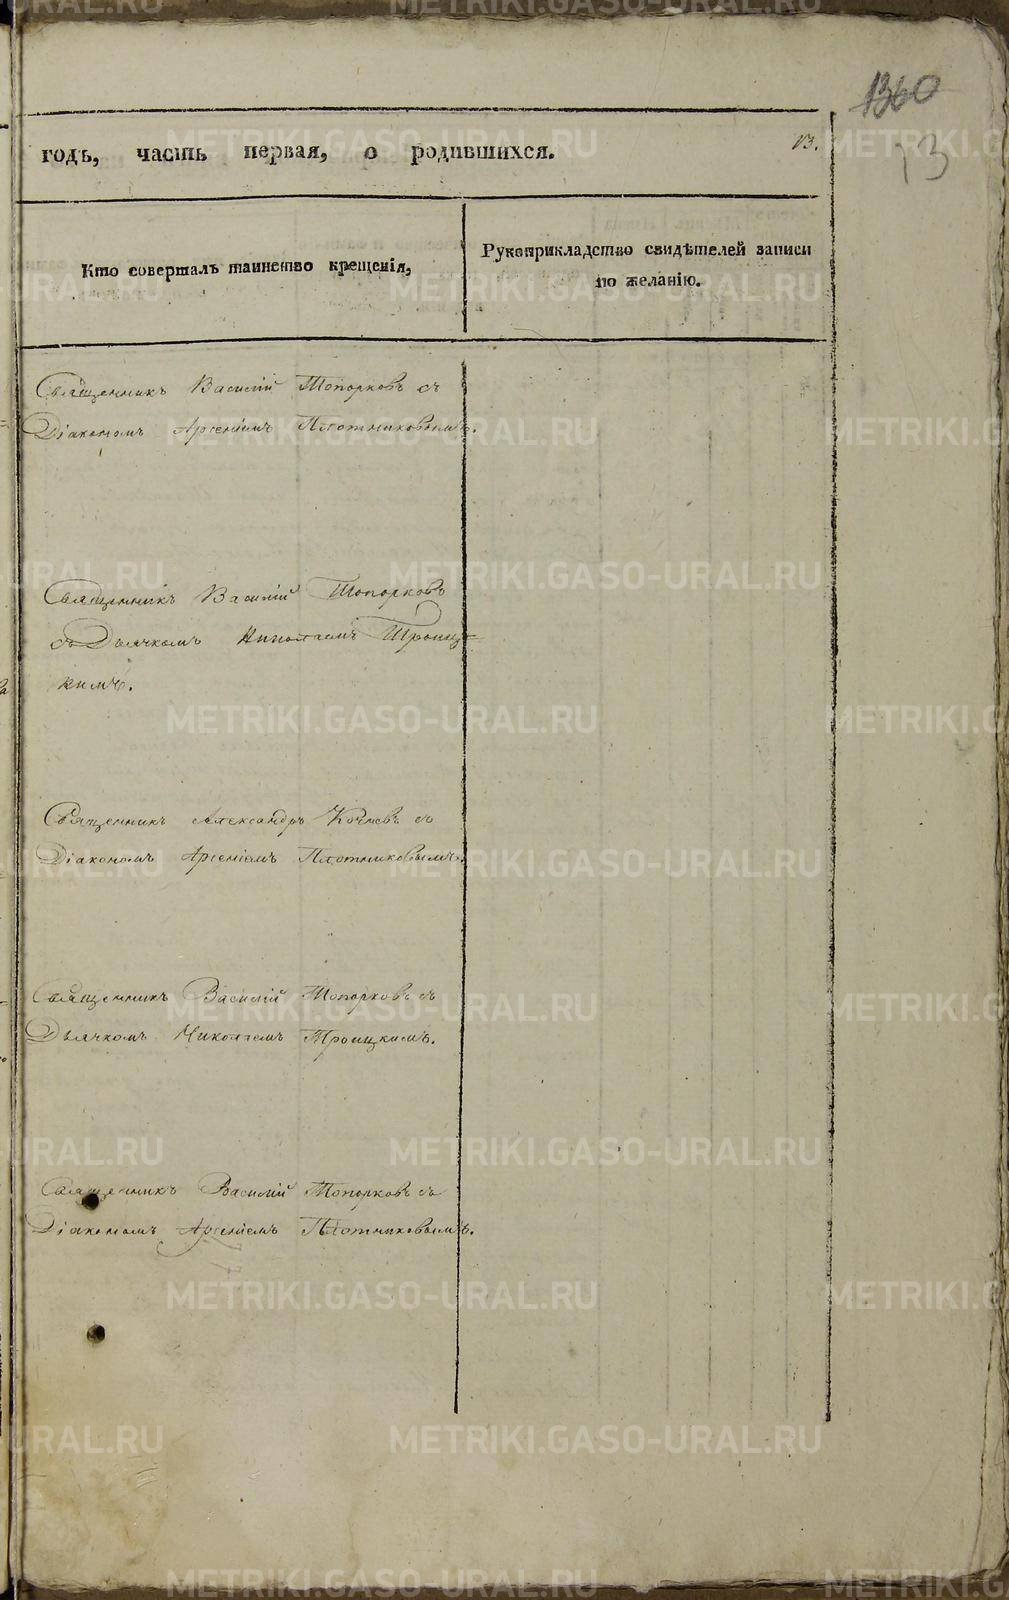 1360
13
годъ, часть первая, о родившихся. 13.
Кто совершалъ таинство крещенія,
Рукоприкладство свидѣтелей записи
по желанію.
Священникъ Василій Топорковъ съ
Діакономъ Арсеніемъ Плотниковымъ.
Священникъ Василій Топорковъ
съ Дьячкомъ Николаемъ Троиц-
кимъ.
Священникъ Александръ Кочневъ съ
Діакономъ Арсеніемъ Плотниковымъ.
Священникъ Василій Топорковъ съ
Дьячкомъ Николаемъ Троицкимъ.
Священникъ Василій Топорковъ съ
Діакономъ Арсеніемъ Плотниковымъ.
METRIKI.GASO-URAL.RU